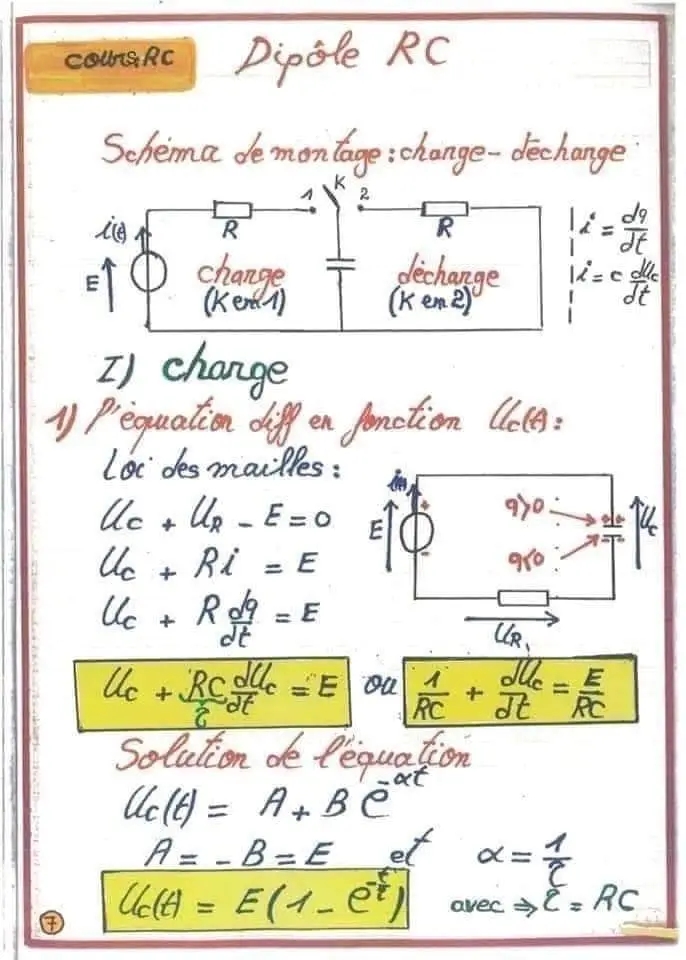 cours RC
Dipôle RC
Schéma de montage : charge - décharge
K
1 2
i(t) R R i = dq/dt
E charge décharge i = c dUc/dt
(K en 1) (K en 2)
I) charge
1) l'équation diff en fonction Uc(t) :
Loi des mailles :
Uc + UR - E = 0
Uc + Ri = E
Uc + R dq/dt = E
E + - q>0 q<0 Uc
UR
Uc + RC dUc/dt = E ou 1/RC + dUc/dt = E/RC
τ
Solution de l'équation
Uc(t) = A + B e^-αt
A = - B = E et α = 1/τ
Uc(t) = E(1 - e^-t/τ) avec ⇒ τ = RC
7